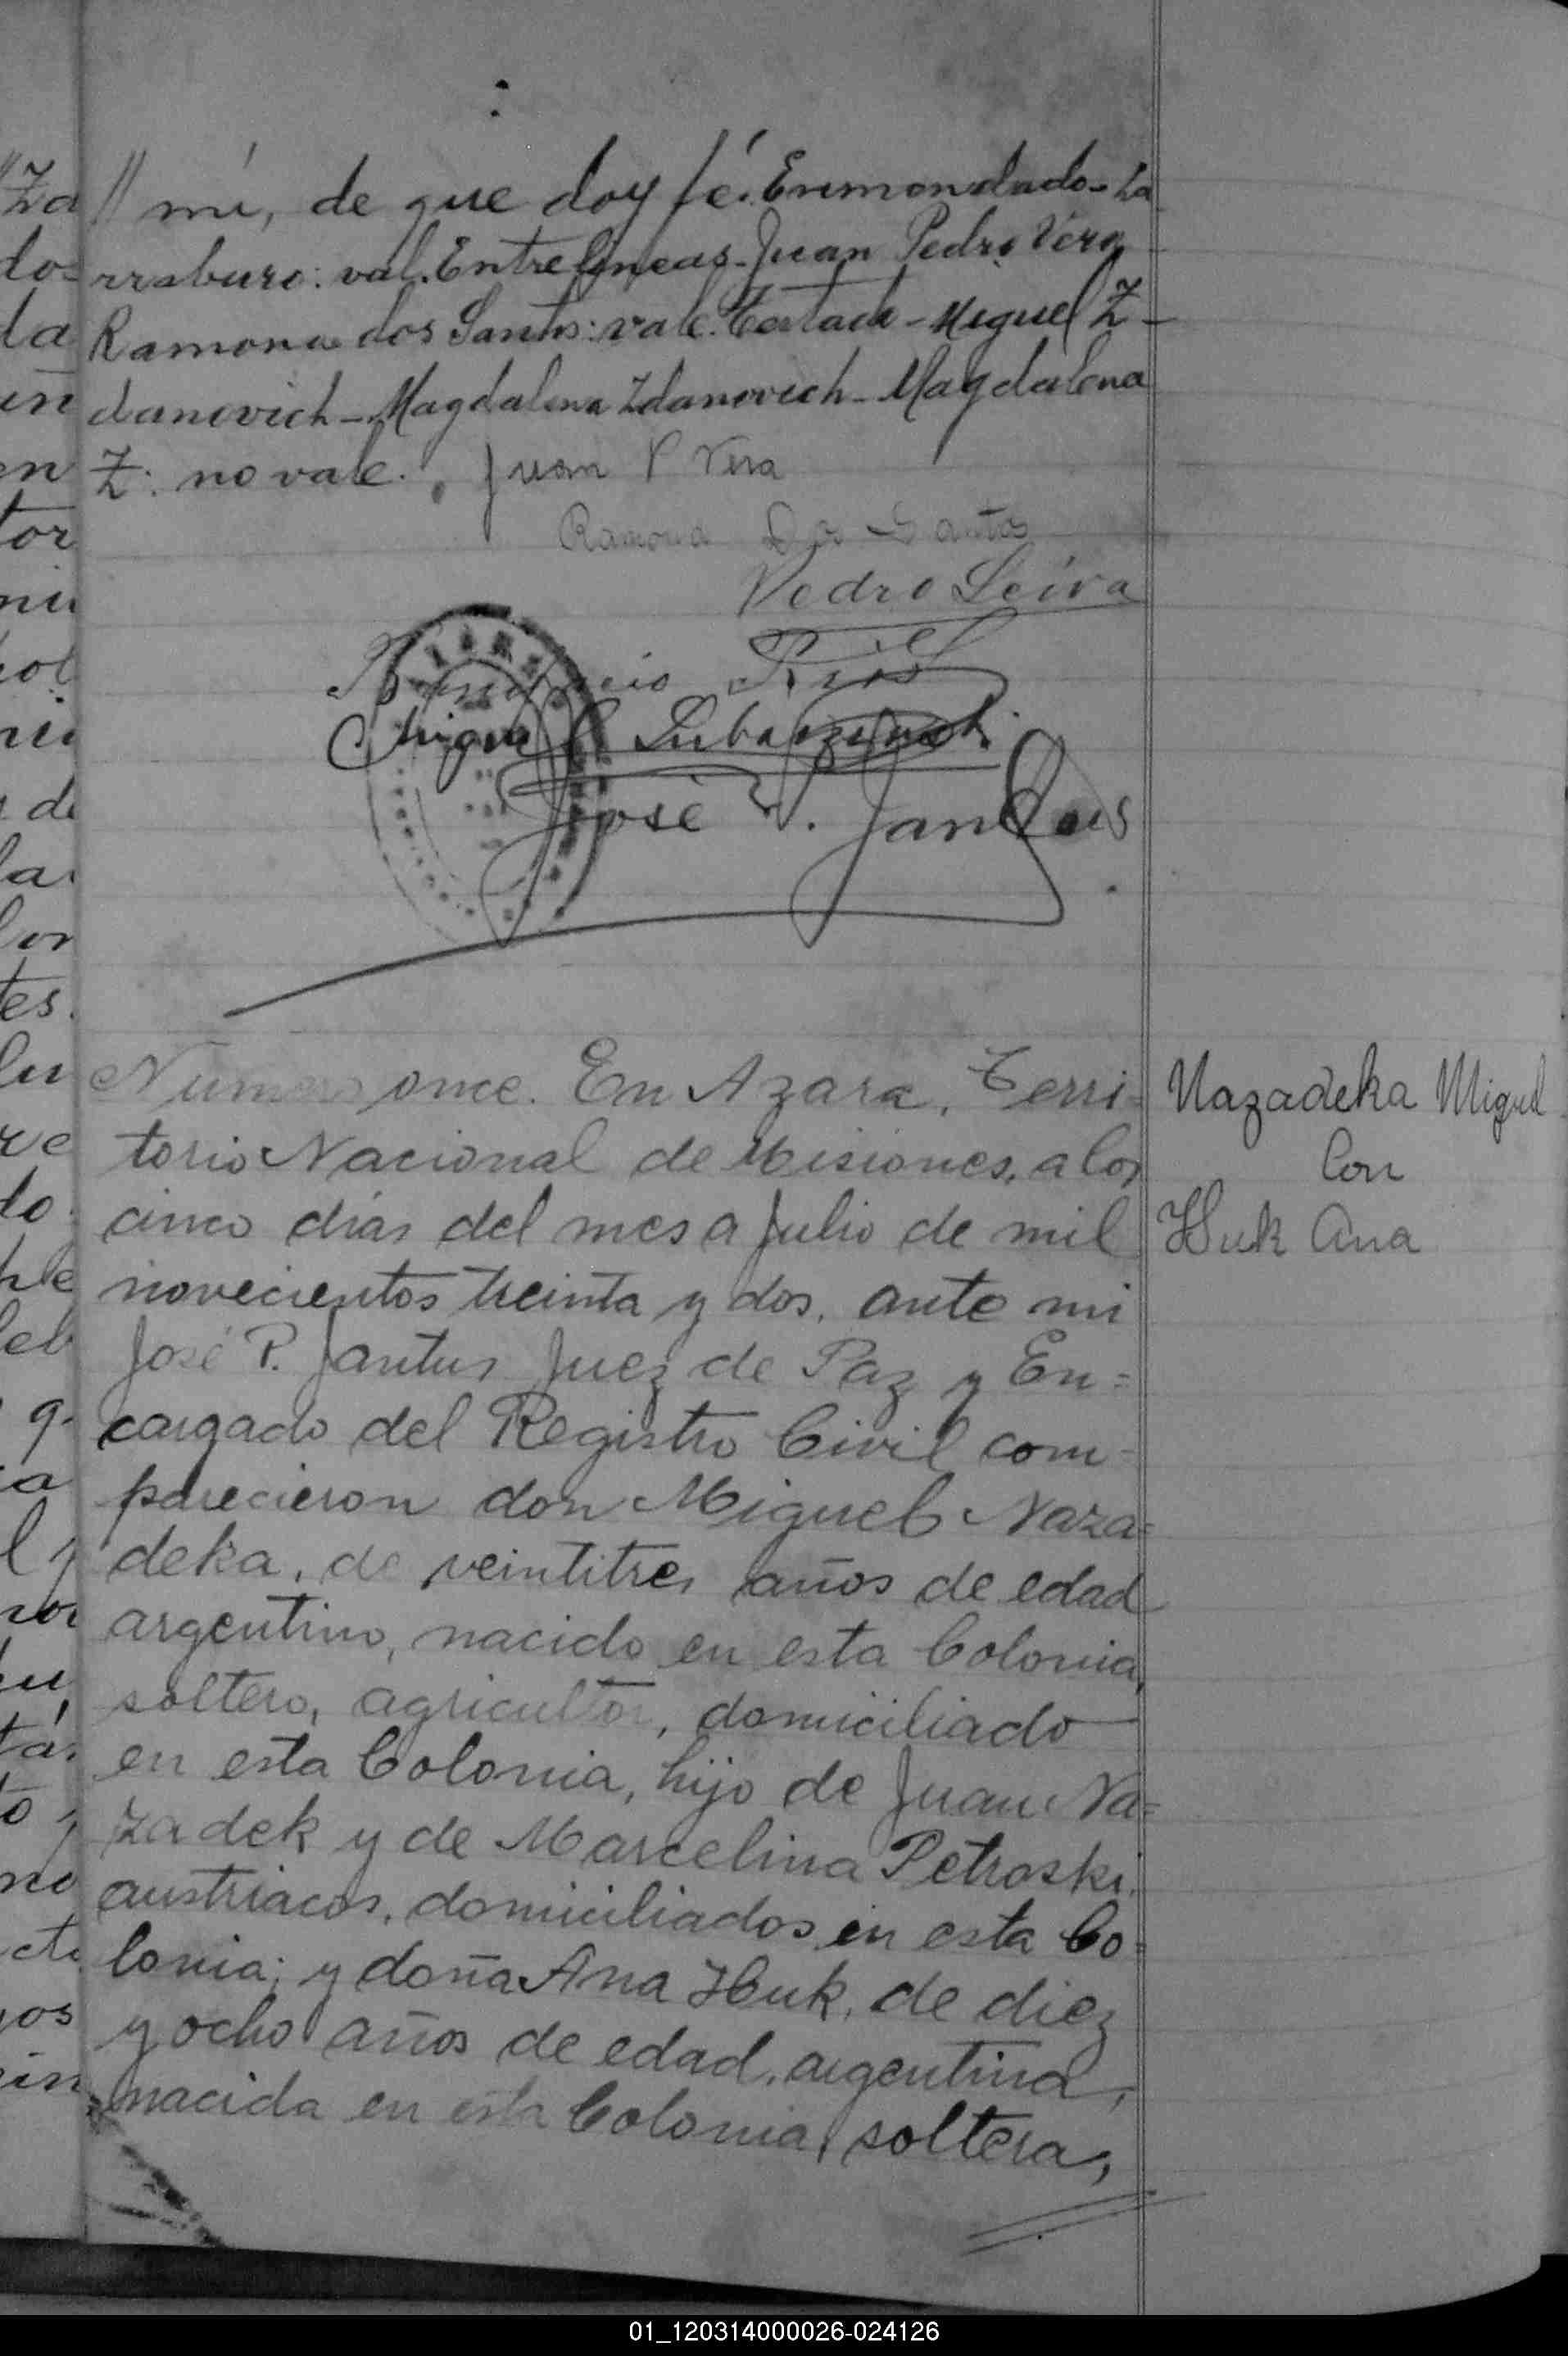 // mí, de que doy fé. Enmendado - La
rraburo: val. Entrelíneas - Juan Pedro Vera
Ramona dos Santos: vale. Testado - Miguel Z-
danovich - Magdalena Zdanovich - Magdalena
Z: no vale.
Juan P Vera
Ramona Do Santos
Pedro Leiva
Ríos
Miguel
José P. Jantus
Numero once. En Azara, Terri-
torio Nacional de Misiones, a los
cinco días del mes a Julio de mil
novecientos treinta y dos, ante mi
José P. Jantus Juez de Paz y En=
cargado del Registro Civil com-
parecieron don Miguel Naza=
deka, de veintitres años de edad
argentino, nacido en esta Colonia,
soltero, agricultor, domiciliado
en esta Colonia, hijo de Juan Na=
zadek y de Marcelina Petroski,
austriacos, domiciliados en esta Co=
lonia; y doña Ana Huk, de diez
y ocho años de edad, argentina,
nacida en esta Colonia, soltera,
Nazadeka Miguel
Con
Huk Ana
01_120314000026-024126